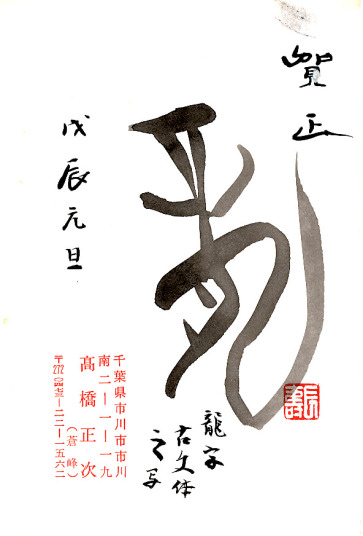 賀正
龍
龍字
古文体
之写
千葉県市川市市川
南二ー一ー一九
髙橋正次
(蒼峰)
〒272 ー二二ー一五六二
戊辰元旦